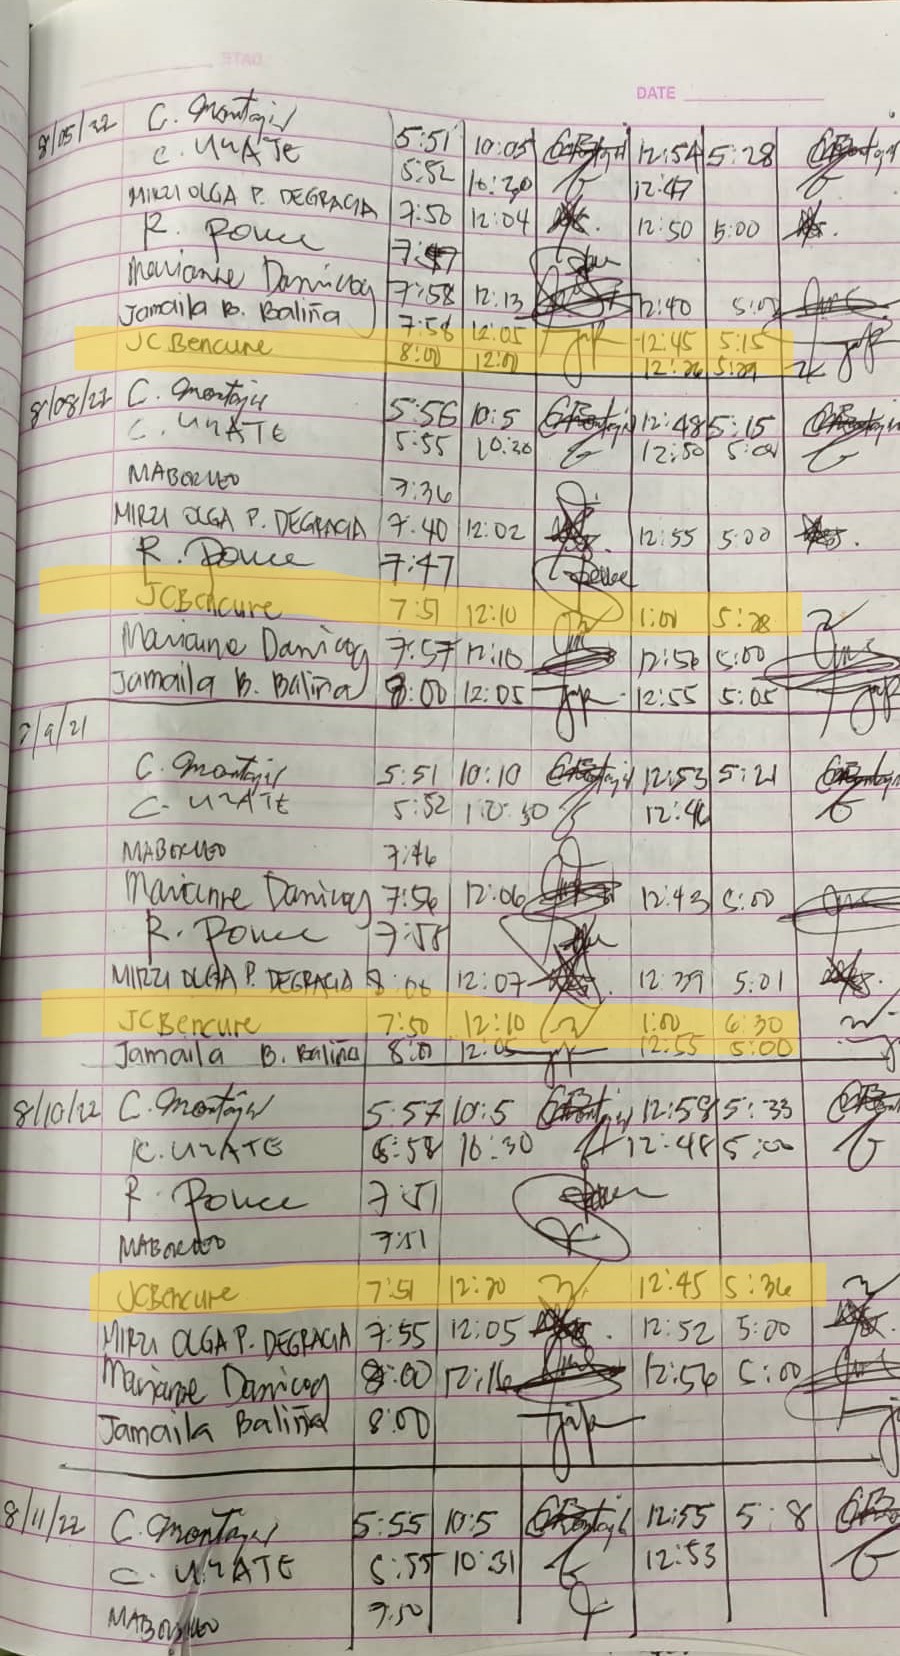 DATE
DATE
8/05/22 C. Montajil 5:51 10:05 12:54 5:28
C. URATE 5:52 10:20 12:47
MIRZI OLGA P. DEGRACIA 7:50 12:04 12:50 5:00
R. Ponce 7:47
Marianne Danicog 7:58 12:13 12:40
Jamaila B. Baliña 7:58 12:05 12:45 5:15
JCBencure 8:00 12:00
C. Montajil 5:56 10:5 12:48 5:15
C. URATE 5:55 10:20 12:50
MABORNEO 7:36
MIRZI OLGA P. DEGRACIA 7:40 12:02 12:55 5:00
R. Ponce 7:47
JCBencure 7:51 12:10 1:00 5:28
Mariane Danicog 7:57 12:10 12:56 5:00
Jamaila B. Baliña 8:00 12:05 12:55 5:05
C. Montajil 5:51 10:10 12:53 5:21
C. URATE 5:52 10:30 12:46
MABORNEO 7:46
Marianne Danicog 7:56 12:06 12:43 5:00
R. Ponce 7:58
MIRZI OLGA P. DEGRACIA 8:06 12:07 12:39 5:01
JCBencure 7:50 12:10 1:00 6:30
Jamaila B. Baliña 8:00 12:05 12:55 5:00
8/10/22 C. Montajil 5:57 10:5 12:58 5:33
C. URATE 5:58 10:30 12:48 5:00
R. Ponce 7:51
MABORNEO 7:51
JCBencure 7:51 12:20 12:45 5:36
MIRZI OLGA P. DEGRACIA 7:55 12:05 12:52 5:00
Mariane Danicog 8:00 12:16 12:56 5:00
Jamaila Baliña 8:00
8/11/22 C. Montajil 5:55 10:5 12:55 5:8
C. URATE 5:55 10:31 12:53
MABORNEO 7:50